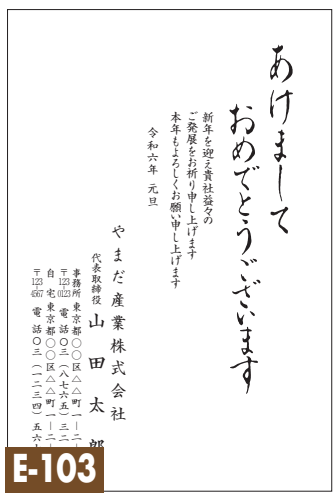 あけまして
おめでとうございます
新年を迎え貴社益々の
ご発展をお祈り申し上げます
本年もよろしくお願い申し上げます
令和六年 元旦
やまだ産業株式会社
代表取締役 山田太郎
事務所 東京都〇〇区△△町一―二―
〒123-0123 電話〇三(八七六五)三二
自宅 東京都〇〇区△△町一―二―
〒123-4567 電話〇三(一二三四)五六
E-103